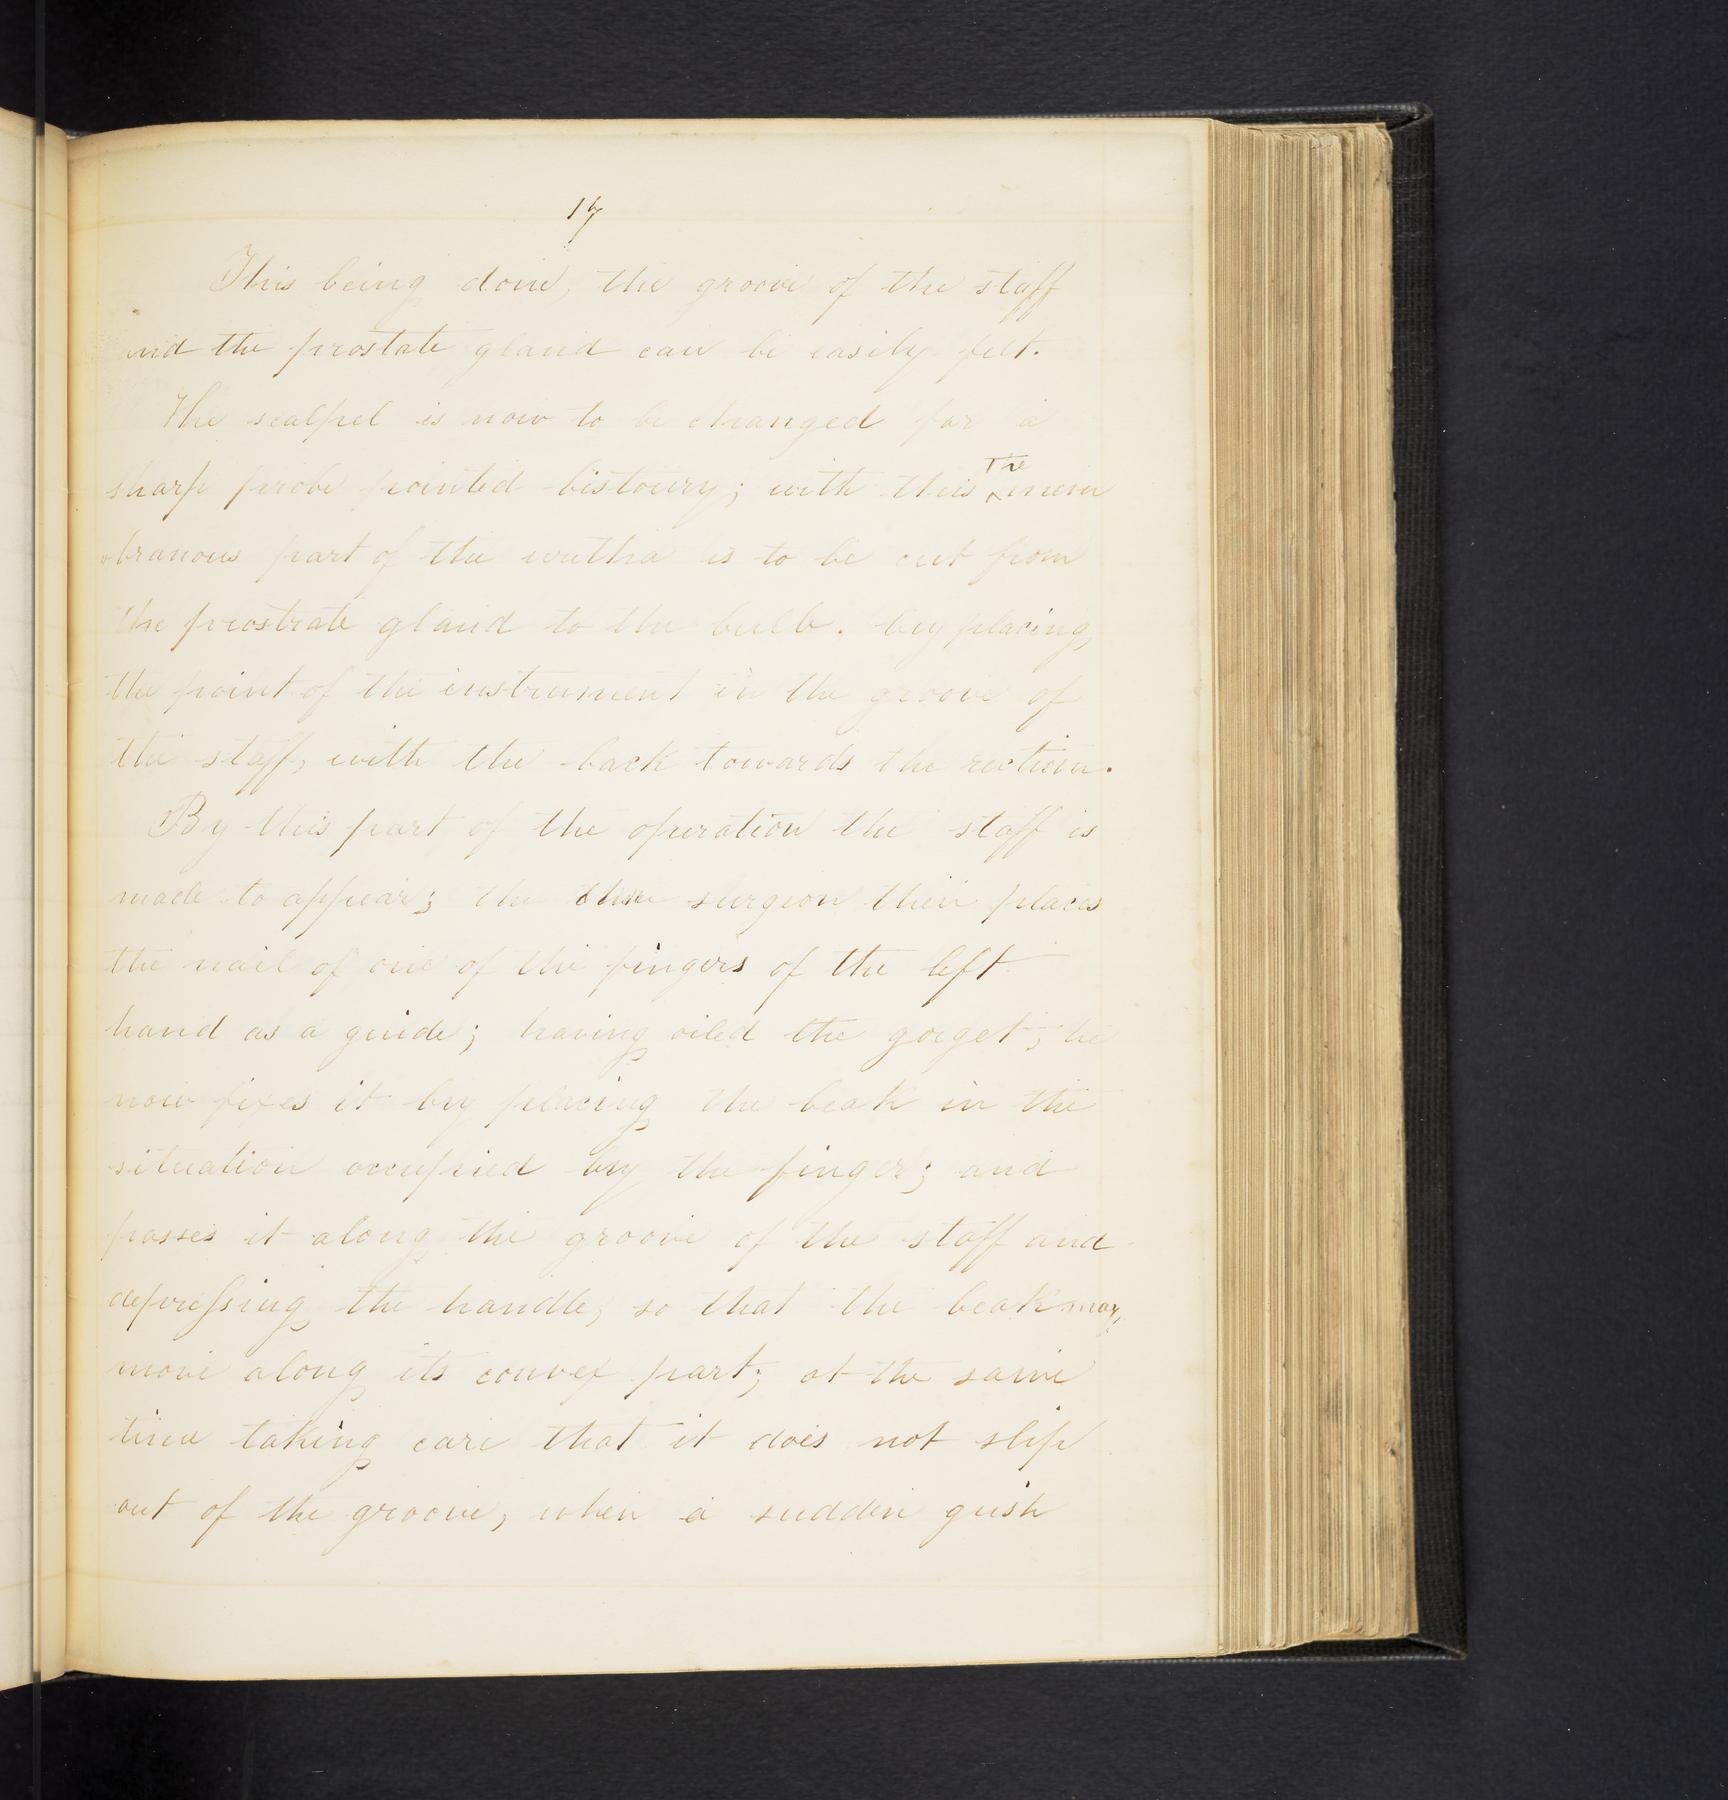 17
This being done, the groove of the staff
and the prostate gland can be easily felt.
The scalpel is now to be changed for a
sharp probe pointed bistoury; with this ^the mem
-branous part of the urethra is to be cut from
the prostrate gland to the bulb. by placing
the point of the instrument in the groove of
the staff, with the back towards the rectum.
By this part of the operation the staff is
made to appear; the surgeon then places
the nail of one of the fingers of the left
hand as a guide; having oiled the gorget, he
now fixes it by placing the beak in the
situation occupied by the finger; and
passes it along the groove of the staff and
depressing the handle, so that the beak may,
move along its convex part; at the same
time taking care that it does not slip
out of the groove, when a sudden gush